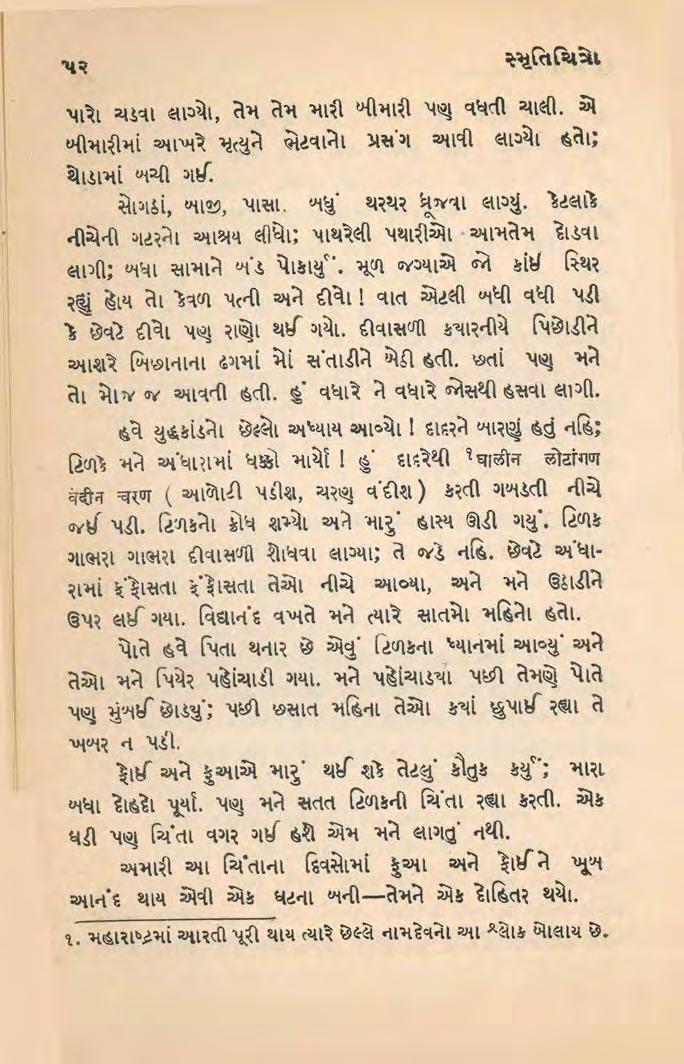 ૫૨ સ્મૃતિચિત્રો
પારો ચડવા લાગ્યો, તેમ તેમ મારી બીમારી પણ વધતી ચાલી. એ
બીમારીમાં આખરે મૃત્યુને ભેટવાનો પ્રસંગ આવી લાગ્યો હતો;
થોડામાં બચી ગઈ.
સોગઠાં, બાજી, પાસા. બધું થરથર ધ્રૂજવા લાગ્યું. કેટલાકે
નીચેની ગટરનો આશ્રય લીધો; પાથરેલી પથારીઓ આમતેમ દોડવા
લાગી; બધા સામાને બંડ પોકાર્યું. મૂળ જગ્યાએ જો કાંઈ સ્થિર
રહ્યું હોય તો કેવળ પત્ની અને દીવો! વાત એટલી બધી વધી પડી
કે છેવટે દીવો પણ રાણો થઈ ગયો. દીવાસળી ક્યારનીયે પિછોડીને
આશરે બિછાનાના ઢગમાં મોં સંતાડીને બેઠી હતી. છતાં પણ મને
તો મોજ જ આવતી હતી. હું વધારે ને વધારે જોસથી હસવા લાગી.
હવે યુદ્ધકાંડનો છેલ્લો અધ્યાય આવ્યો! દાદરને બારણું હતું નહિ;
ટિળકે મને અંધારામાં ધક્કો માર્યો! હું દાદરેથી ૧घालीन लोटांगण
वंदीन चरण (આળોટી પડીશ, ચરણ વંદીશ) કરતી ગબડતી નીચે
જઈ પડી. ટિળકનો ક્રોધ શમ્યો અને મારું હાસ્ય ઊડી ગયું. ટિળક
ગાભરા ગાભરા દીવાસળી શોધવા લાગ્યા; તે જડે નહિ. છેવટે અંધા-
રામાં ફંફોસતા ફંફોસતા તેઓ નીચે આવ્યા, અને મને ઉઠાડીને
ઉપર લઈ ગયા. વિદ્યાનંદ વખતે મને ત્યારે સાતમો મહિનો હતો.
પોતે હવે પિતા થનાર છે એવું ટિળકના ધ્યાનમાં આવ્યું અને
તેઓ મને પિયેર પહોંચાડી ગયા. મને પહોંચાડ્યા પછી તેમણે પોતે
પણ મુંબઈ છોડ્યું; પછી છસાત મહિના તેઓ ક્યાં છુપાઈ રહ્યા તે
ખબર ન પડી.
ફોઈ અને ફુઆએ મારું થઈ શકે તેટલું કૌતુક કર્યું; મારા
બધા દોહદો પૂર્યા. પણ મને સતત ટિળકની ચિંતા રહ્યા કરતી. એક
ઘડી પણ ચિંતા વગર ગઈ હશે એમ મને લાગતું નથી.
અમારી આ ચિંતાના દિવસોમાં ફુઆ અને ફોઈને ખૂબ
આનંદ થાય એવી એક ઘટના બની—તેમને એક દોહિતર થયો.
૧. મહારાષ્ટ્રમાં આરતી પૂરી થાય ત્યારે છેલ્લે નામદેવનો આ શ્લોક બોલાય છે.